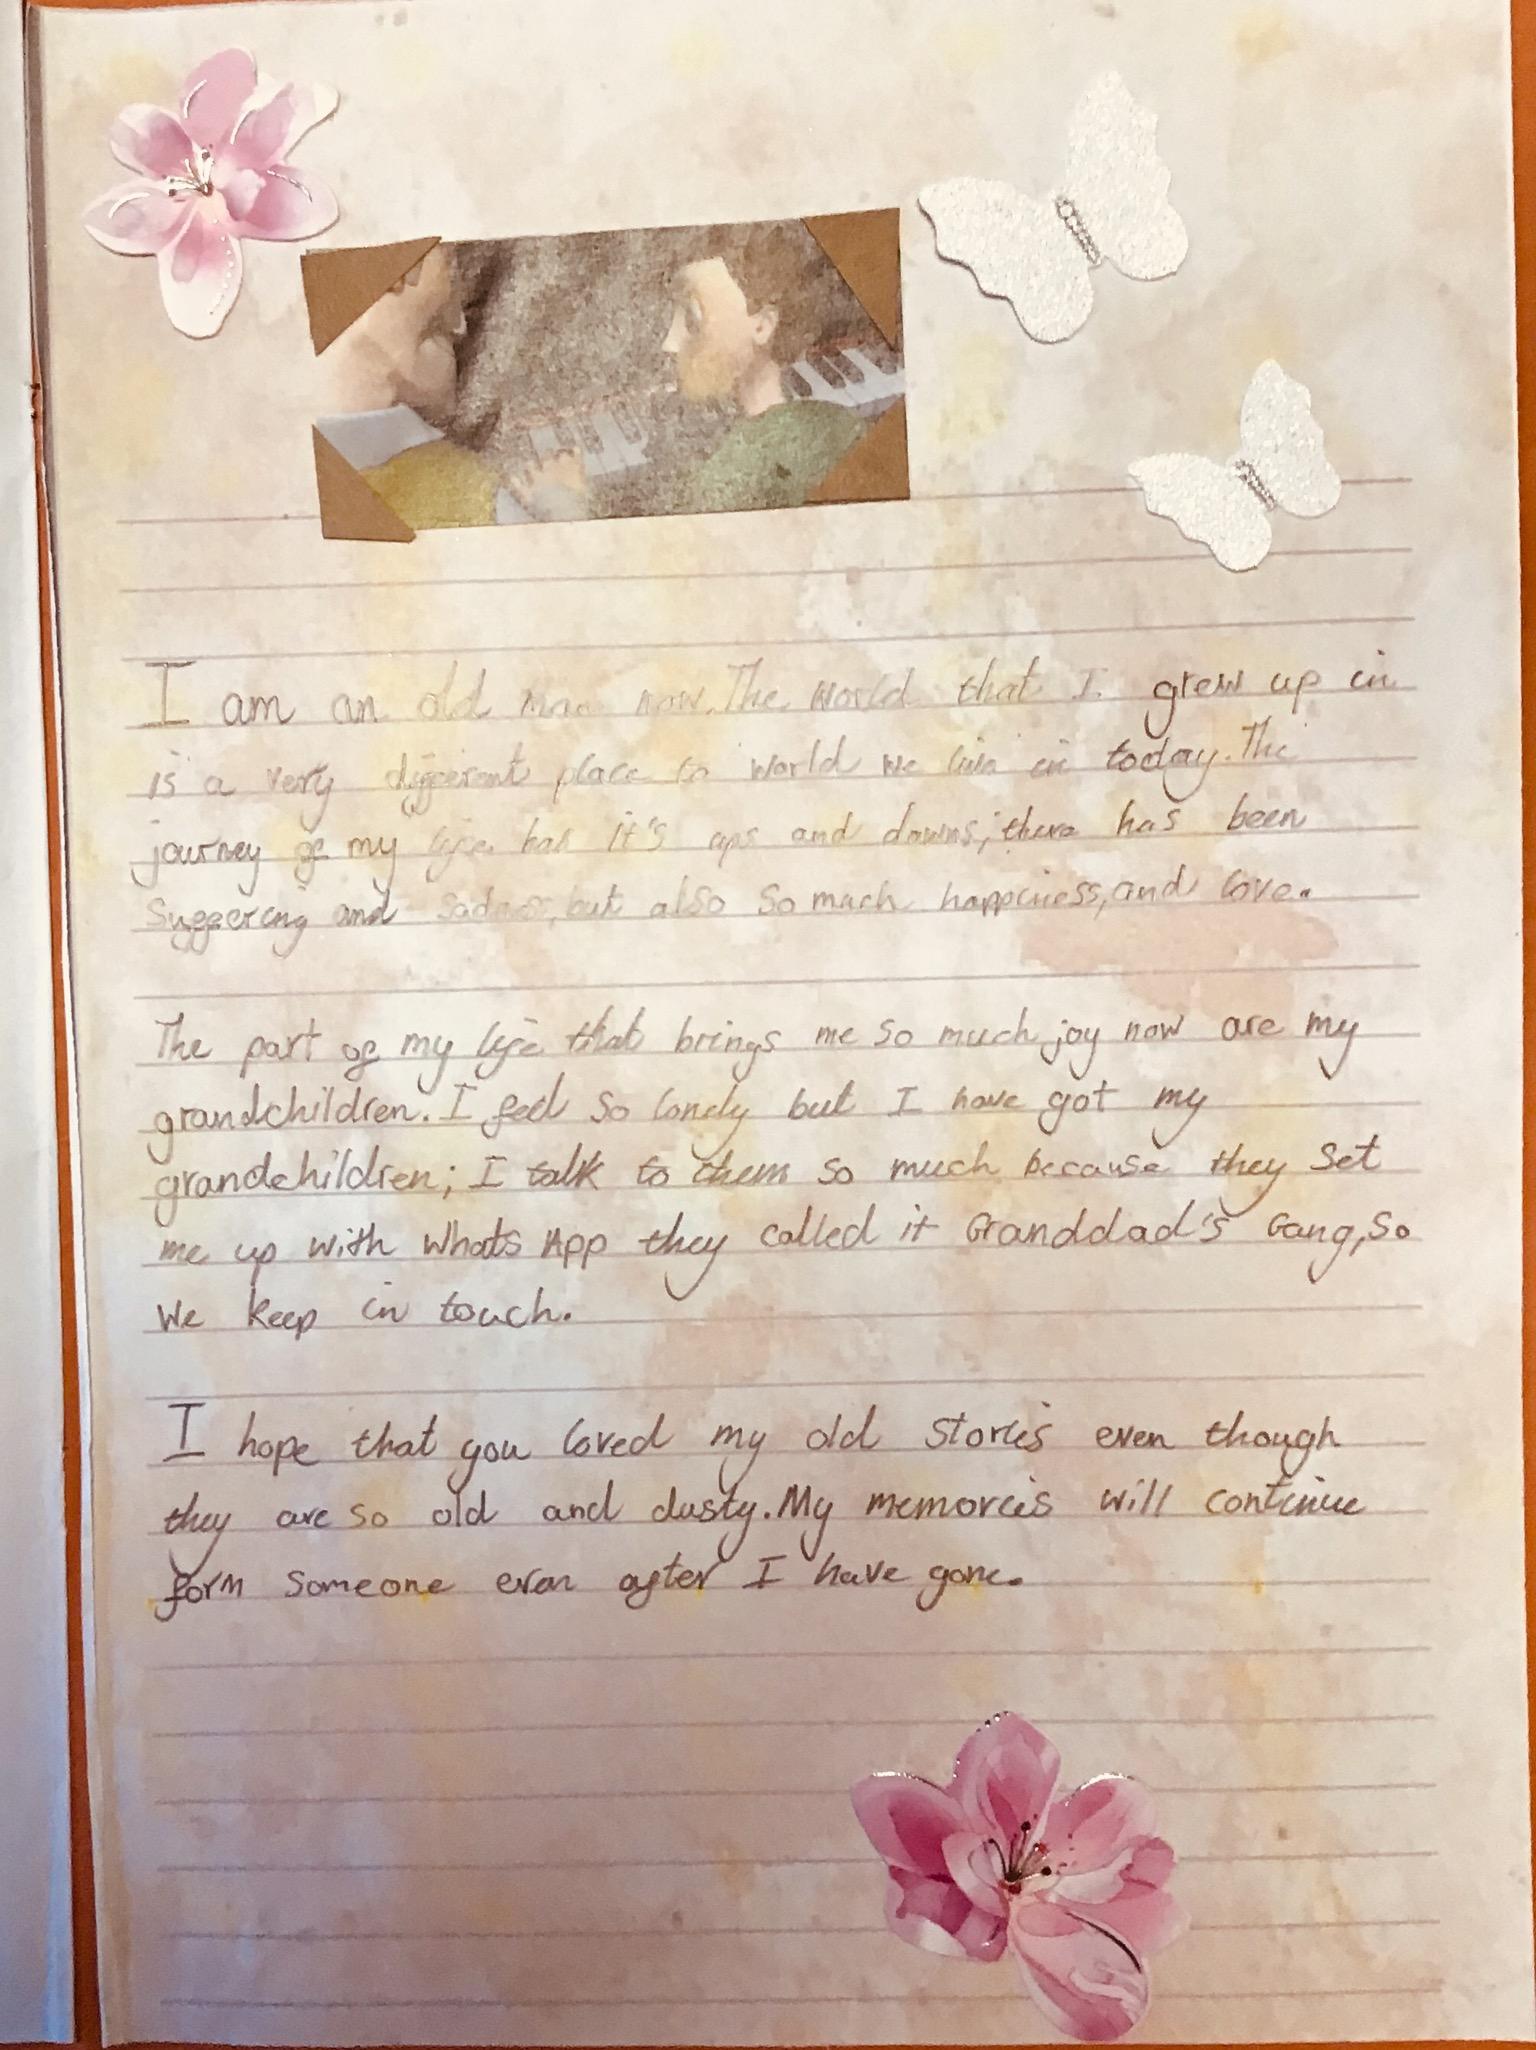 I am an old man now. The world that I grew up in
is a very different place to world we live in today. The
journey of my life has it's ups and downs; there has been
suffering and sadness, but also so much happiness, and love.
The part of my life that brings me so much joy now are my
grandchildren. I feel so lonely but I have got my
grandchildren; I talk to them so much because they set
me up with Whats App they called it Granddad's Gang, so
we keep in touch.
I hope that you loved my old stories even though
they are so old and dusty. My memories will continue
form someone even after I have gone.